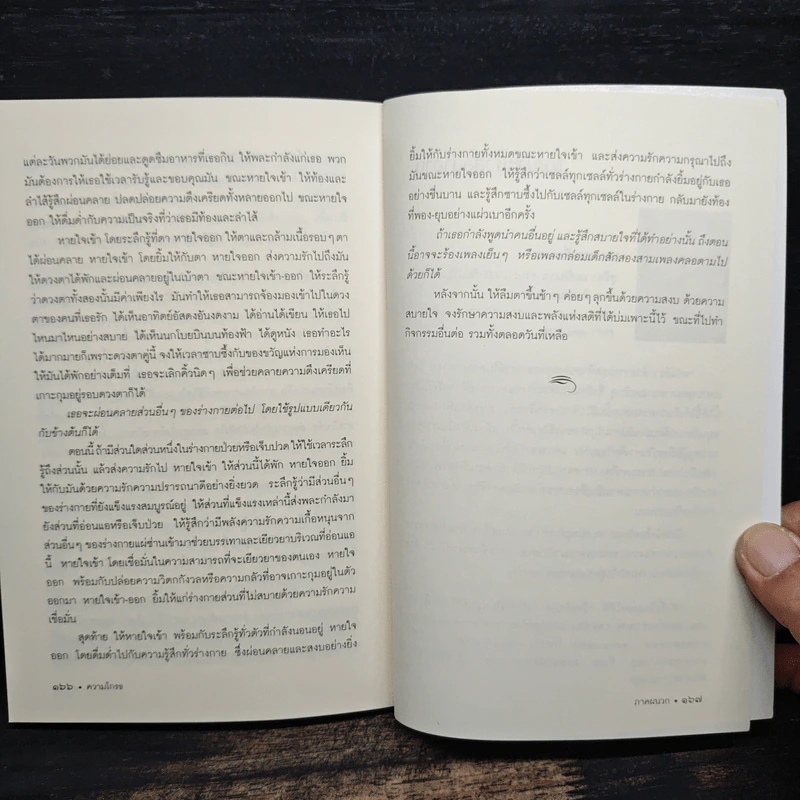 แต่ละวันพวกมันได้ย่อยและดูดซึมอาหารที่เธอกิน ให้พละกำลังแก่เธอ พวก
มันต้องการให้เธอใช้เวลารับรู้และขอบคุณมัน ขณะหายใจเข้า ให้ท้องและ
ลำไส้รู้สึกผ่อนคลาย ปลดปล่อยความตึงเครียดทั้งหลายออกไป ขณะหายใจ
ออก ให้ดื่มด่ำกับความเป็นจริงที่ว่าเธอมีท้องและลำไส้
หายใจเข้า โดยระลึกรู้ที่ตา หายใจออก ให้ตาและกล้ามเนื้อรอบๆ ตา
ได้ผ่อนคลาย หายใจเข้า โดยยิ้มให้กับตา หายใจออก ส่งความรักไปถึงมัน
ให้ดวงตาได้พักและผ่อนคลายอยู่ในเบ้าตา ขณะหายใจเข้า-ออก ให้ระลึกรู้
ว่าดวงตาทั้งสองนั้นมีค่าเพียงไร มันทำให้เธอสามารถจ้องมองเข้าไปในดวง
ตาของคนที่เธอรัก ได้เห็นอาทิตย์อัสดงอันงดงาม ได้อ่านได้เขียน ให้เธอไป
ไหนมาไหนอย่างสบาย ได้เห็นนกโบยบินบนท้องฟ้า ได้ดูหนัง เธอทำอะไร
ได้มากมายก็เพราะดวงตาคู่นี้ จงให้เวลาซาบซึ้งกับของขวัญแห่งการมองเห็น
ให้มันได้พักอย่างเต็มที่ เธอจะเลิกคิ้วนิดๆ เพื่อช่วยคลายความตึงเครียดที่
เกาะกุมอยู่รอบดวงตาก็ได้
เธอจะผ่อนคลายส่วนอื่นๆ ของร่างกายต่อไป โดยใช้รูปแบบเดียวกัน
กับข้างต้นก็ได้
ตอนนี้ ถ้ามีส่วนใดส่วนหนึ่งในร่างกายป่วยหรือเจ็บปวด ให้ใช้เวลาระลึก
รู้ถึงส่วนนั้น แล้วส่งความรักไป หายใจเข้า ให้ส่วนนี้ได้พัก หายใจออก ยิ้ม
ให้กับมันด้วยความรักความปรารถนาดีอย่างยิ่งยวด ระลึกรู้ว่ามีส่วนอื่นๆ
ของร่างกายที่ยังแข็งแรงสมบูรณ์อยู่ ให้ส่วนที่แข็งแรงเหล่านี้ส่งพละกำลังมา
ยังส่วนที่อ่อนแอหรือเจ็บป่วย ให้รู้สึกว่ามีพลังความรักความเกื้อหนุนจาก
ส่วนอื่นๆ ของร่างกายแผ่ซ่านเข้ามาช่วยบรรเทาและเยียวยาบริเวณที่อ่อนแอ
นี้ หายใจเข้า โดยเชื่อมั่นในความสามารถที่จะเยียวยาของตนเอง หายใจ
ออก พร้อมกับปล่อยความวิตกกังวลหรือความกลัวที่อาจเกาะกุมอยู่ในตัว
ออกมา หายใจเข้า-ออก ยิ้มให้แก่ร่างกายส่วนที่ไม่สบายด้วยความรักความ
เชื่อมั่น
สุดท้าย ให้หายใจเข้า พร้อมกับระลึกรู้ทั่วตัวที่กำลังนอนอยู่ หายใจ
ออก โดยดื่มด่ำไปกับความรู้สึกทั่วร่างกาย ซึ่งผ่อนคลายและสงบอย่างยิ่ง
๑๖๖ • ความโกรธ
ยิ้มให้กับร่างกายทั้งหมดขณะหายใจเข้า และส่งความรักความกรุณาไปถึง
มันขณะหายใจออก ให้รู้สึกว่าเซลล์ทุกเซลล์ทั่วร่างกายกำลังยิ้มอยู่กับเธอ
อย่างชื่นบาน และรู้สึกซาบซึ้งไปกับเซลล์ทุกเซลล์ในร่างกาย กลับมายังท้อง
ที่พอง-ยุบอย่างแผ่วเบาอีกครั้ง
ถ้าเธอกำลังพูดนำคนอื่นอยู่ และรู้สึกสบายใจที่ได้ทำอย่างนั้น ถึงตอน
นี้อาจจะร้องเพลงเย็นๆ หรือเพลงกล่อมเด็กสักสองสามเพลงคลอตามไป
ด้วยก็ได้
หลังจากนั้น ให้ลืมตาขึ้นช้าๆ ค่อยๆ ลุกขึ้นด้วยความสงบ ด้วยความ
สบายใจ จงรักษาความสงบและพลังแห่งสติที่ได้บ่มเพาะนี้ไว้ ขณะที่ไปทำ
กิจกรรมอื่นต่อ รวมทั้งตลอดวันที่เหลือ
ภาคผนวก • ๑๖๗